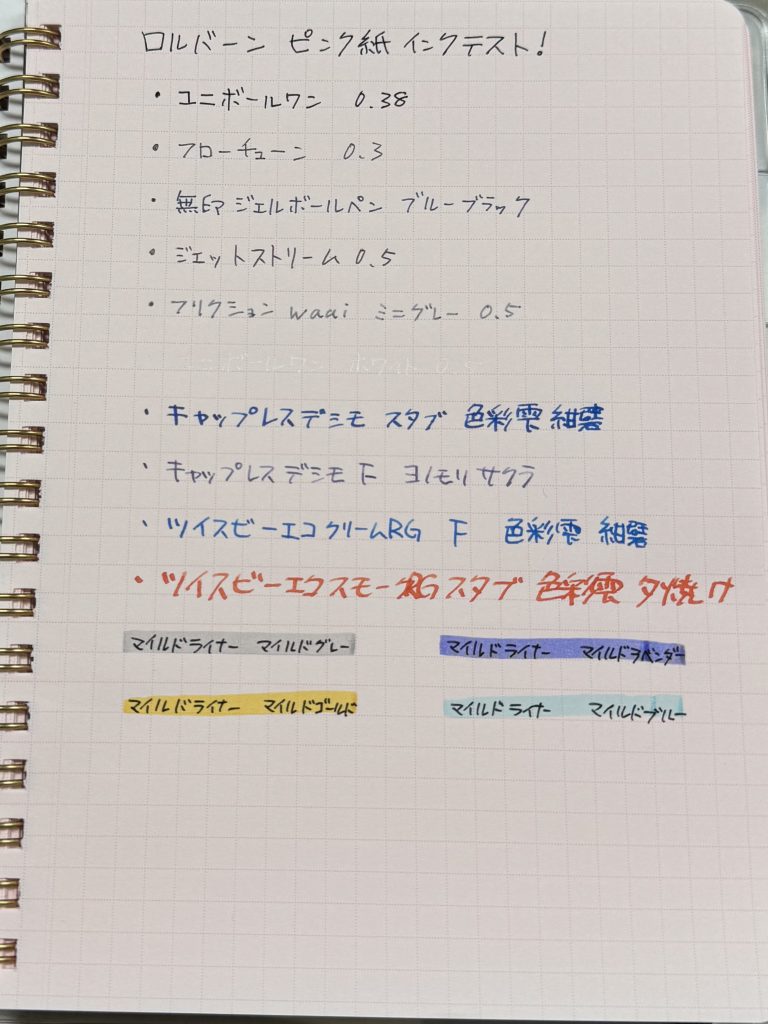 ロルバーン ピンク紙 インクテスト!
・ユニボールワン 0.38
・フローチューン 0.3
・無印 ジェルボールペン ブルーブラック
・ジェットストリーム 0.5
・フリクション waai ミニグレー 0.5
ユニボールワン ホワイト
・キャップレスデシモ スタブ 色彩雫 紺碧
・キャップレスデシモ F ヨノモリサクラ
・ツイスビーエコクリームRG F 色彩雫 紺碧
・ツイスビーエコスモークRG スタブ 色彩雫 夕焼け
マイルドライナー マイルドグレー
マイルドライナー マイルドラベンダー
マイルドライナー マイルドゴールド
マイルドライナー マイルドブルー